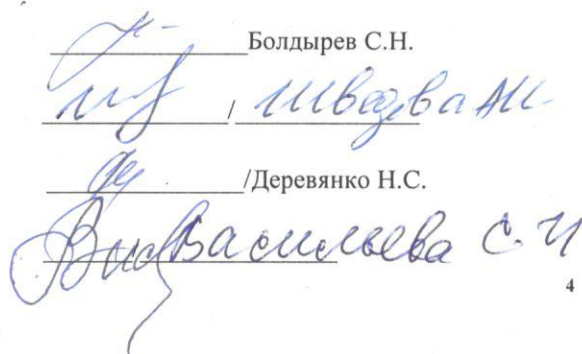 Болдырев С.Н.
/ Шведова А.И.
/Деревянко Н.С.
Васильева С.И
4